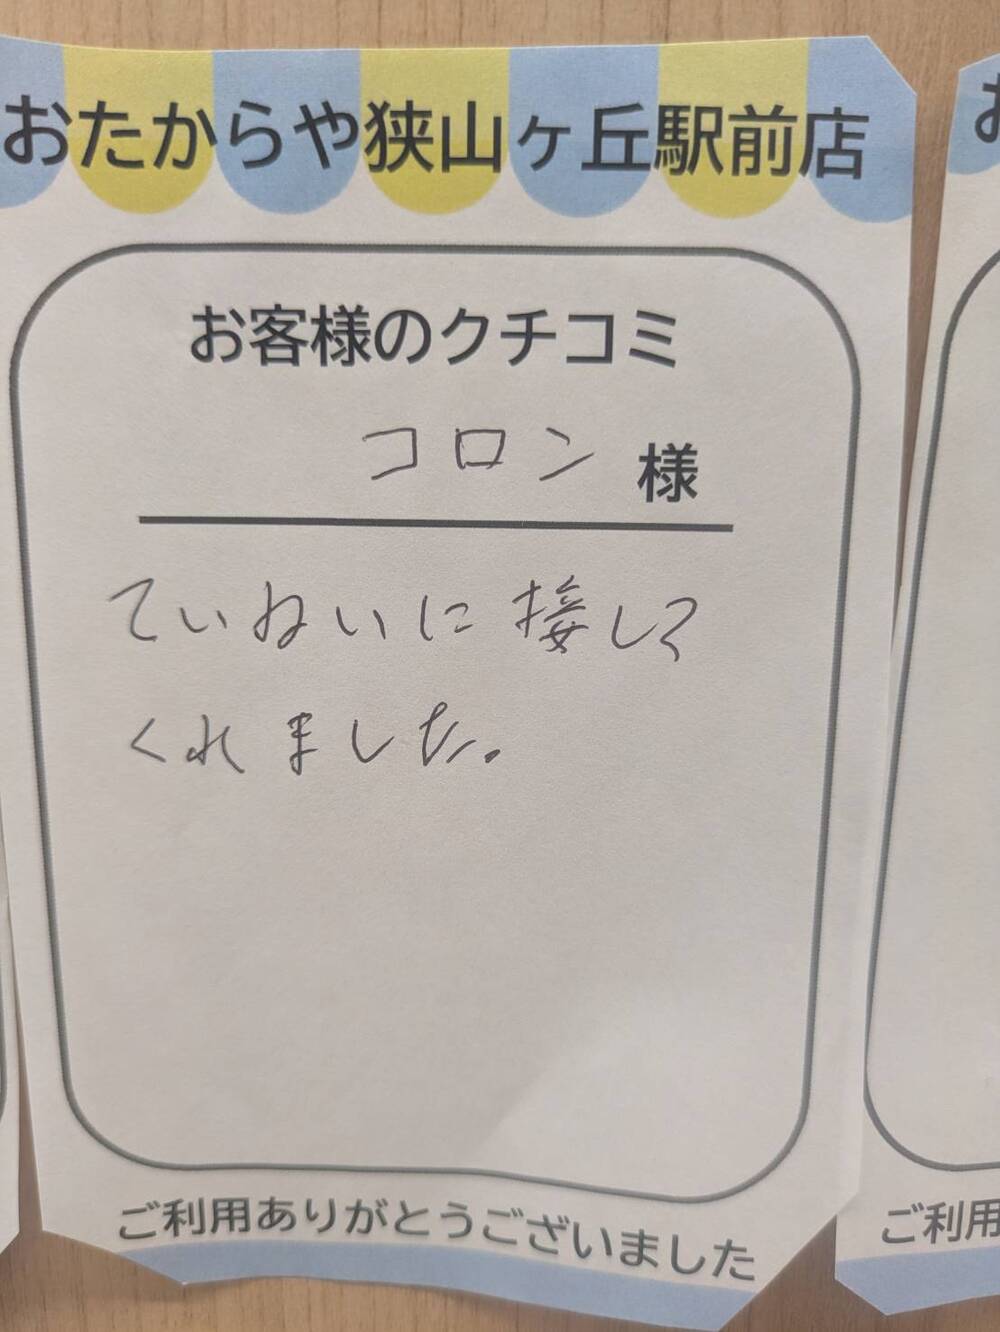 おたからや狭山ヶ丘駅前店
お客様のクチコミ
コロン 様
ていねいに接して
くれました。
ご利用ありがとうございました
お
ご利用